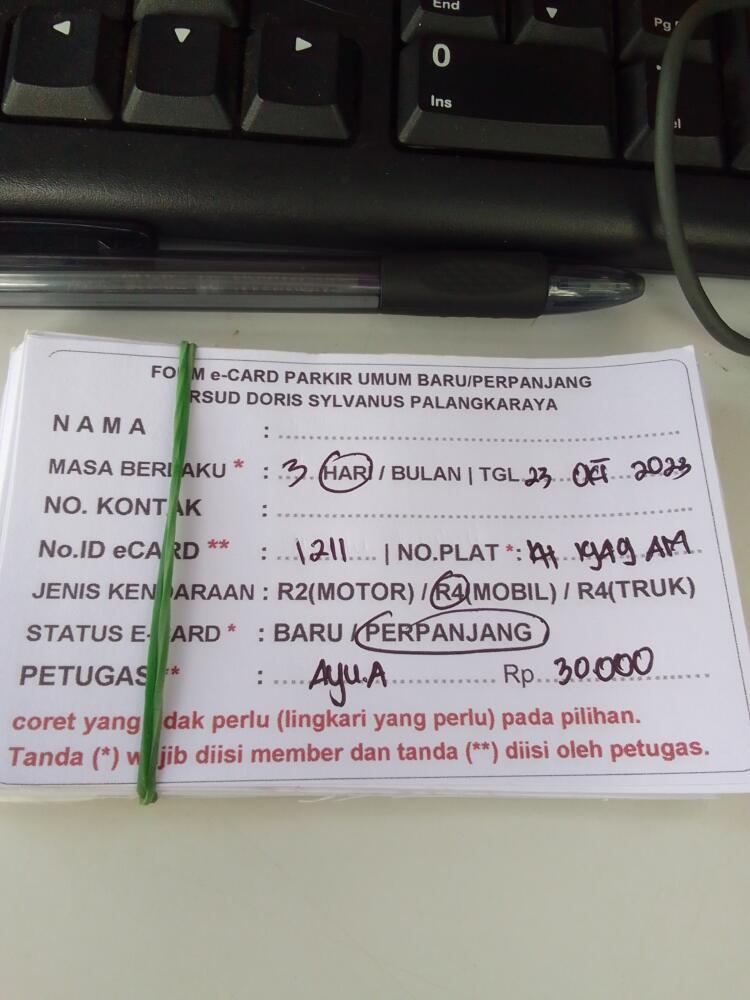 End
Pg
0
Ins
el
FORM e-CARD PARKIR UMUM BARU/PERPANJANG
RSUD DORIS SYLVANUS PALANGKARAYA
NAMA :
MASA BERLAKU * : 3 HARI / BULAN | TGL 23 OKT 2023
NO. KONTAK :
No.ID eCARD ** : 1211 | NO.PLAT *: KH 1949 AM
JENIS KENDARAAN : R2(MOTOR) / R4(MOBIL) / R4(TRUK)
STATUS E-CARD * : BARU / PERPANJANG
PETUGAS ** : Ayu.A Rp 30.000
coret yang tidak perlu (lingkari yang perlu) pada pilihan.
Tanda (*) wajib diisi member dan tanda (**) diisi oleh petugas.